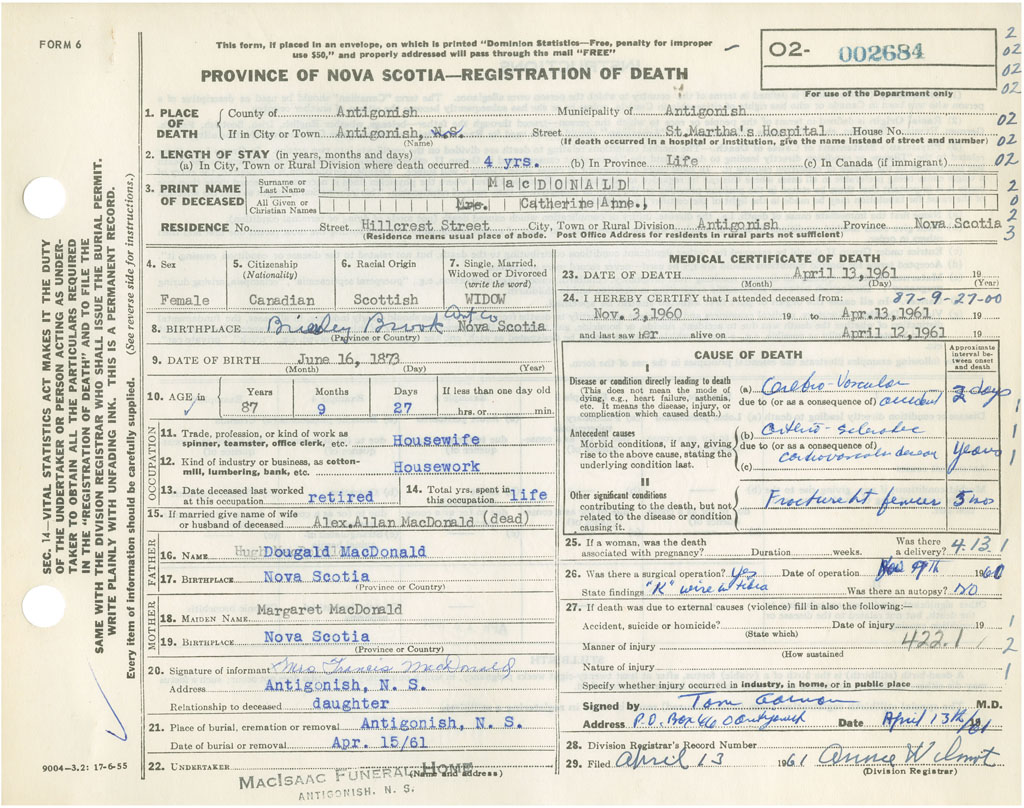 FORM 6
This form, if placed in an envelope, on which is printed "Dominion Statistics—Free, penalty for improper
use $50," and properly addressed will pass through the mail "FREE"
O2- 002684
For use of the Department only
PROVINCE OF NOVA SCOTIA—REGISTRATION OF DEATH
2
02
02
02
1. PLACE OF DEATH
County of Antigonish Municipality of Antigonish 02
If in City or Town Antigonish, N.S. Street St.Martha's Hospital House No. 02
(Name) (If death occurred in a hospital or institution, give the name instead of street and number)
2. LENGTH OF STAY (in years, months and days)
(a) In City, Town or Rural Division where death occurred 4 yrs. (b) In Province Life (c) In Canada (if immigrant) 02
3. PRINT NAME OF DECEASED
Surname or Last Name MacDONALD 2
All Given or Christian Names Mrs. Catherine Anne. 0
2
RESIDENCE No. Street Hillcrest Street City, Town or Rural Division Antigonish Province Nova Scotia 3
(Residence means usual place of abode. Post Office Address for residents in rural parts not sufficient)
4. Sex
Female
5. Citizenship
(Nationality)
Canadian
6. Racial Origin
Scottish
7. Single, Married,
Widowed or Divorced
(write the word)
WIDOW
8. BIRTHPLACE Brook Nova Scotia
(Province or Country)
9. DATE OF BIRTH June 16, 1873
(Month) (Day) (Year)
10. AGE in
Years 87
Months 9
Days 27
If less than one day old
hrs. or min.
OCCUPATION
11. Trade, profession, or kind of work as
spinner, teamster, office clerk, etc. Housewife
12. Kind of industry or business, as cotton-
mill, lumbering, bank, etc. Housework
13. Date deceased last worked
at this occupation retired
14. Total yrs. spent in
this occupation life
15. If married give name of wife
or husband of deceased Alex.Allan MacDonald (dead)
FATHER
16. NAME Dougald MacDonald
17. BIRTHPLACE Nova Scotia
(Province or Country)
MOTHER
18. MAIDEN NAME Margaret MacDonald
19. BIRTHPLACE Nova Scotia
(Province or Country)
20. Signature of informant Mrs Francis McDonald
Address Antigonish, N. S.
Relationship to deceased daughter
21. Place of burial, cremation or removal Antigonish, N. S.
Date of burial or removal Apr. 15/61
22. UNDERTAKER
(Name and address)
MACISAAC FUNERAL HOME
ANTIGONISH. N. S.
MEDICAL CERTIFICATE OF DEATH
23. DATE OF DEATH April 13,1961 19
(Month) (Day) (Year)
24. I HEREBY CERTIFY that I attended deceased from: 87-9-27-00
Nov. 3,1960 19 to Apr.13,1961 19
and last saw her alive on April 12,1961 19
CAUSE OF DEATH
Approximate
interval be-
tween onset
and death
I
Disease or condition directly leading to death
(This does not mean the mode of
dying, e.g., heart failure, asthenia,
etc. It means the disease, injury, or
complication which caused death.)
(a) Cerebro-Vascular
due to (or as a consequence of) accident 2 days 1
Antecedent causes
Morbid conditions, if any, giving
rise to the above cause, stating the
underlying condition last.
(b) Arterio-sclerotic 1
due to (or as a consequence of)
cardiovascular disease years 1
(c)
II
Other significant conditions
contributing to the death, but not
related to the disease or condition
causing it.
Fracture Rt femur 5 mo
25. If a woman, was the death
associated with pregnancy? Duration weeks. Was there
a delivery? 4.13 1
26. Was there a surgical operation? Yes Date of operation Nov 9th 1960
State findings "K" wire in tibia Was there an autopsy? no
27. If death was due to external causes (violence) fill in also the following:—
Accident, suicide or homicide? Date of injury 19 1
(State which)
Manner of injury 422.1 2
(How sustained
Nature of injury 1
Specify whether injury occurred in industry, in home, or in public place
Signed by Tom Gorman M.D.
Address P.O. Box 66 Antigonish Date April 13th/61
28. Division Registrar's Record Number
29. Filed April 13 1961 Annie Wilmot
(Division Registrar)
SEC. 14—VITAL STATISTICS ACT MAKES IT THE DUTY
OF THE UNDERTAKER OR PERSON ACTING AS UNDER-
TAKER TO OBTAIN ALL THE PARTICULARS REQUIRED
IN THE "REGISTRATION OF DEATH" AND TO FILE THE
SAME WITH THE DIVISION REGISTRAR WHO SHALL ISSUE THE BURIAL PERMIT.
WRITE PLAINLY WITH UNFADING INK. THIS IS A PERMANENT RECORD.
Every item of information should be carefully supplied. (See reverse side for instructions.)
9004-3.2: 17-6-55